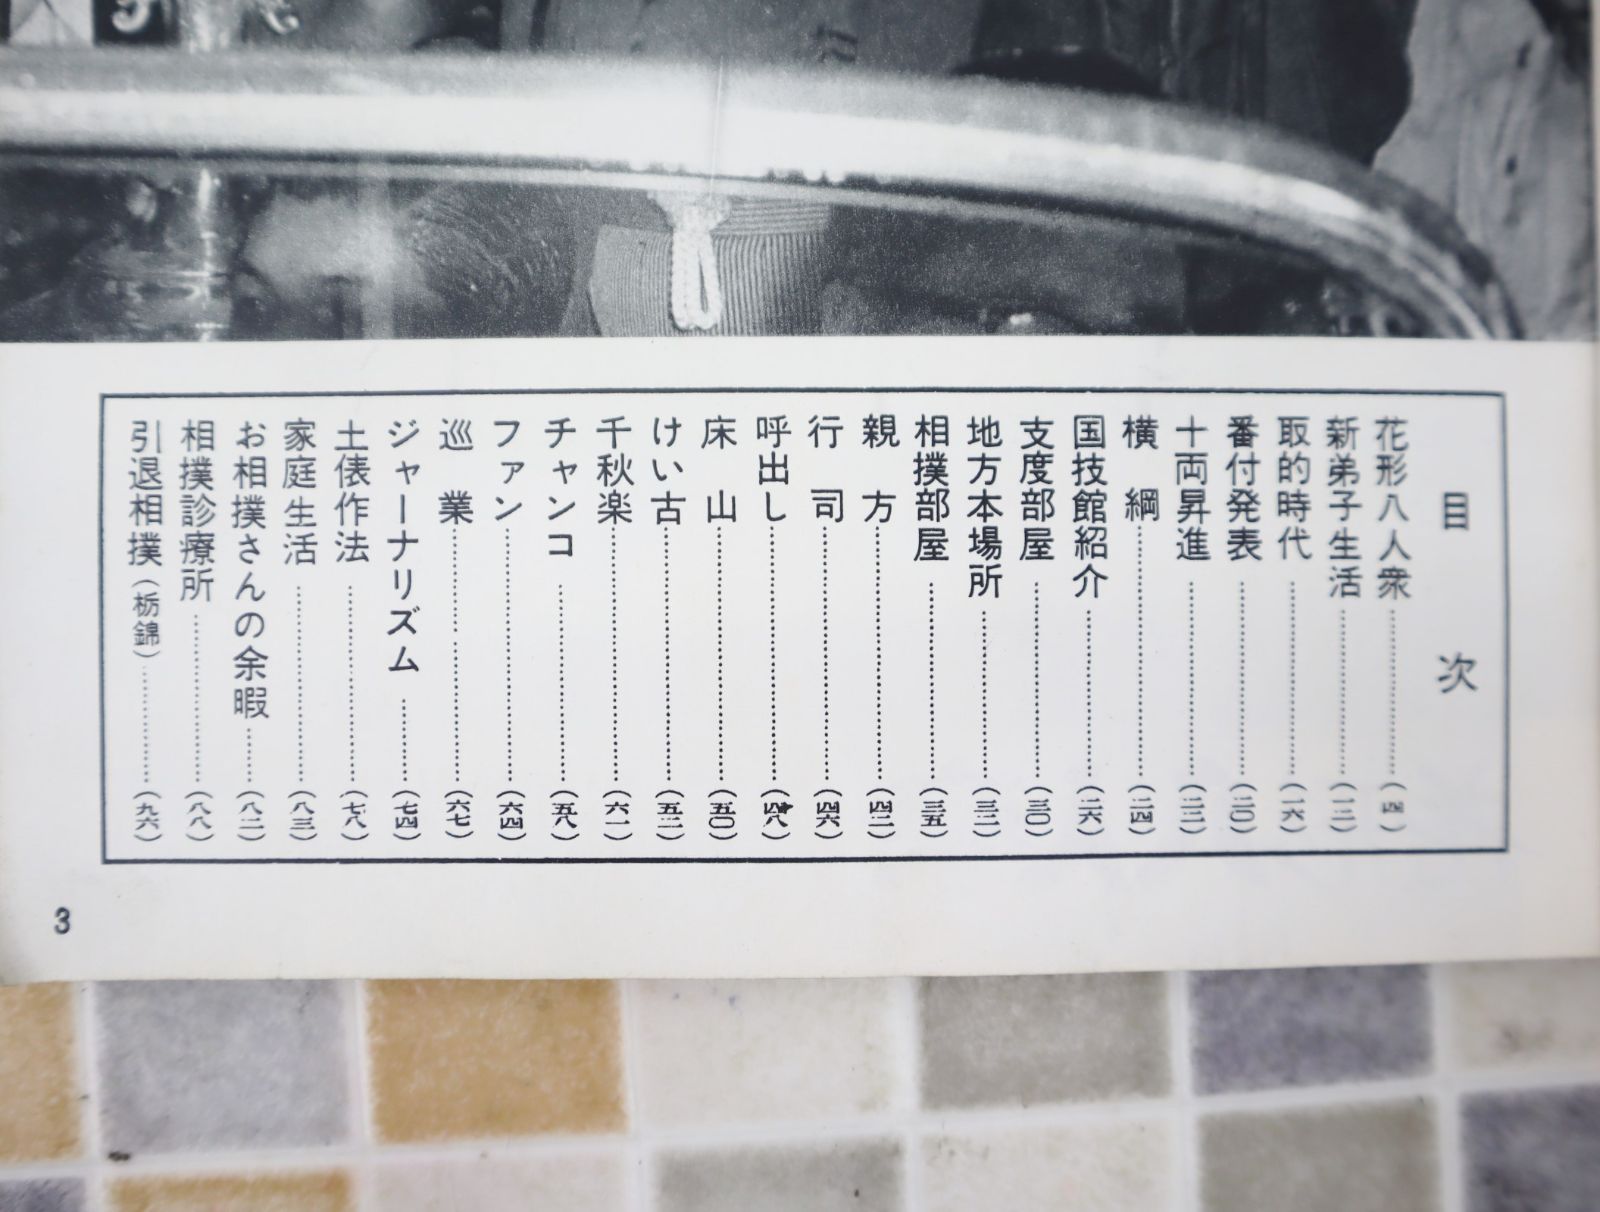 目次
花形八人衆……(四)
新弟子生活……(一二)
取的時代……(一六)
番付発表……(二〇)
十両昇進……(二二)
横綱……(二四)
国技館紹介……(二六)
支度部屋……(三〇)
地方本場所……(三二)
相撲部屋……(三五)
親方……(四二)
行司……(四六)
呼出し……(四八)
床山……(五〇)
けい古……(五二)
千秋楽……(六一)
チャンコ……(五八)
ファン……(六四)
巡業……(六七)
ジャーナリズム……(七四)
土俵作法……(七八)
家庭生活……(八三)
お相撲さんの余暇……(八二)
相撲診療所……(八八)
引退相撲(栃錦)……(九六)
3